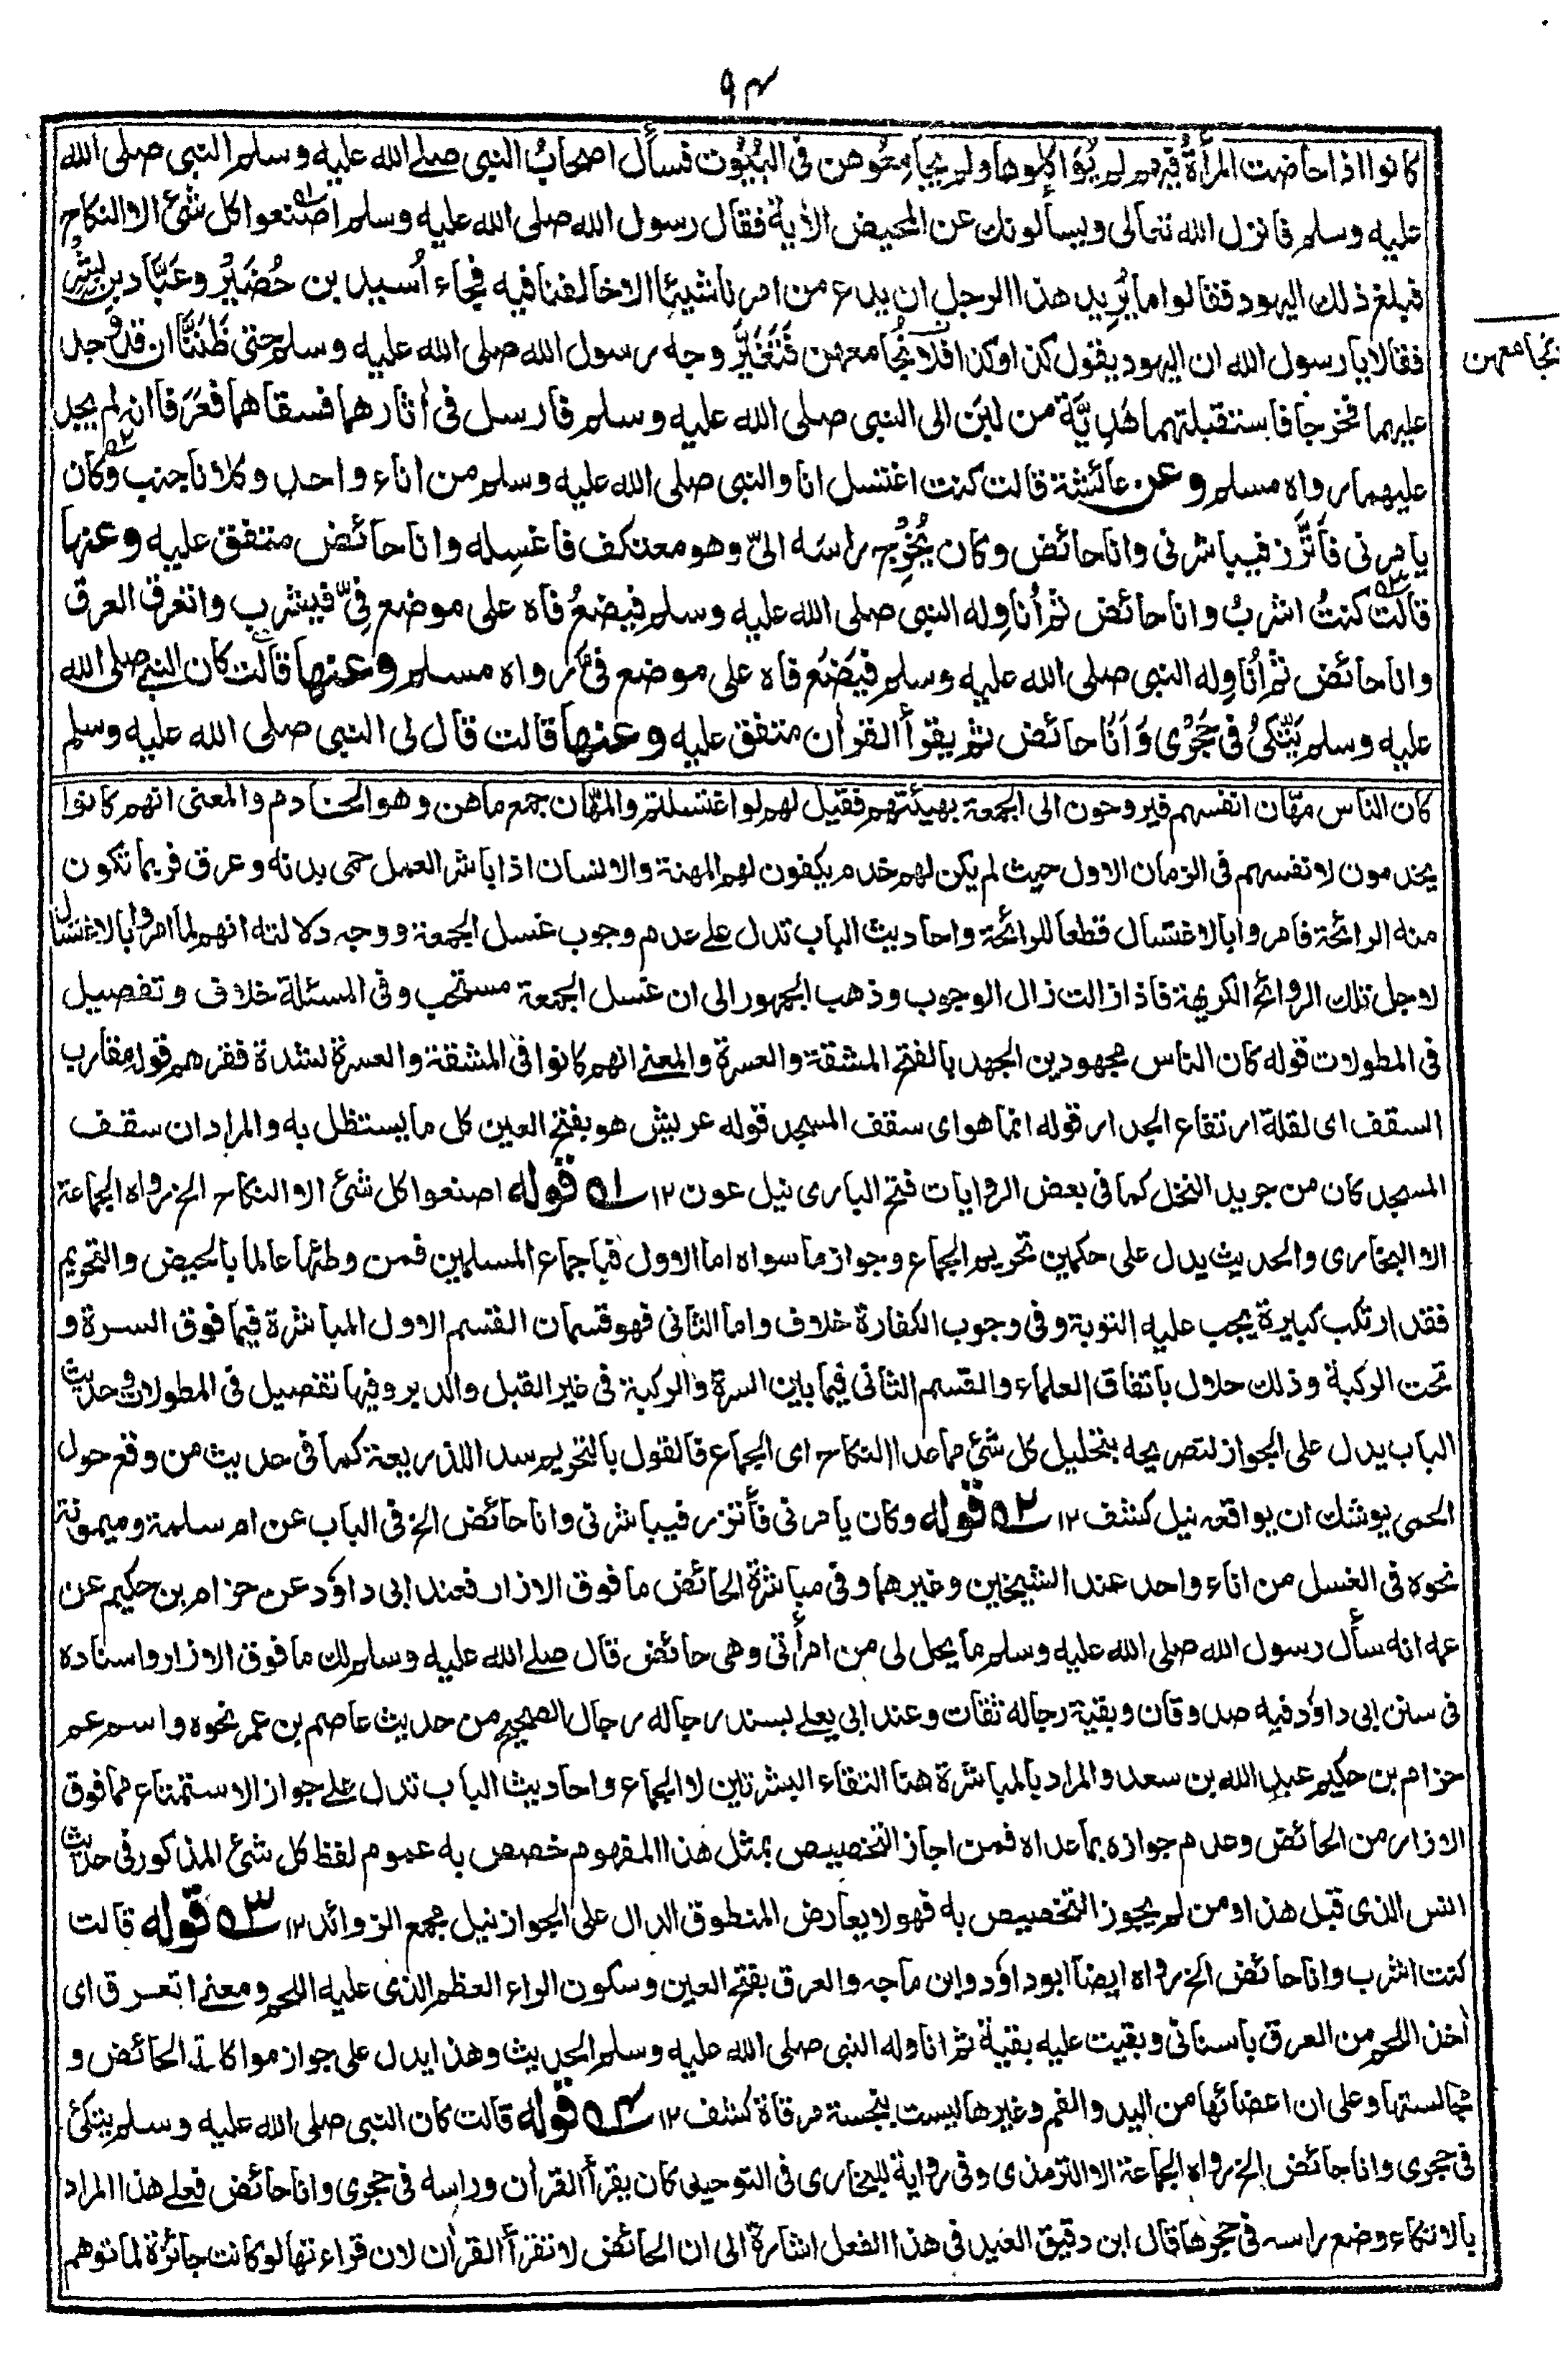 ٩٤
كانوا اذا حاضت المرأةُ فيهم لم يُؤاكلوها ولم يجامِعُوهن فى البُيُوت فسأل اصحابُ النبى صلے الله عليه وسلم النبى صلى الله
عليه وسلم فانزل الله تعالى ويسألونك عن المحيض الأية فقال رسول الله صلى الله عليه وسلم اصنعوا كل شئ الا النكاح
فبلغ ذلك اليهود فقالوا ما يُريد هذا الرجل ان يدع من امرنا شيئا الا خالفنا فيه فجاء اُسيد بن حُضَيْر وعَبَّاد بن بِشْر
فقالا يا رسول الله ان اليهود يقول كذا وكذا افلا نُجامعهن فَتَغَيَّرَ وجه رسول الله صلى الله عليه وسلم حتى ظَنَنَّا ان قد وجد
نجامعهن
عليهما فخرجا فاستقبلتهما هَدِيَّة من لبن الى النبى صلى الله عليه وسلم فارسل فى أثارهما فسقاهما فعَرَفا انه لم يجد
عليهما رواه مسلم وعن عائشة قالت كنت اغتسل انا والنبى صلى الله عليه وسلم من اناء واحد وكلانا جنب ٥٢ وكان
يامرنى فأتَّزر فيباشرنى وانا حائض وكان يُخْرِج راسَه الىّ وهو معتكف فاغسِله وانا حائض متفق عليه وعنها
قالت ٥٣ كنتُ اشربُ وانا حائض ثم أُناوِله النبى صلى الله عليه وسلم فيضعُ فاه على موضع فِىَّ فيشرب واتعرق العرق
وانا حائض ثم أُناوِله النبى صلى الله عليه وسلم فيَضَع فاه على موضع فىَّ رواه مسلم وعنها قالت كان النبى صلى الله
عليه وسلم يَتَّكِئُ فى حَجْرى وَاَنَا حائض ثم يقرأ القرأن متفق عليه وعنها قالت قال لى النبى صلى الله عليه وسلم
كان الناس مهّان انفسهم فيروحون الى الجمعة بهيئتهم فقيل لهم لو اغتسلتم والمهّان جمع ماهن وهو الخادم والمعنى انهم كانوا
يخدمون لانفسهم فى الزمان الاول حيث لم يكن لهم خدم يكفون لهم المهنة والانسان اذا باشر العمل حمى بدنه وعرق فربما تكون
منه الرائحة فامروا بالاغتسال قطعا للرائحة واحاديث الباب تدل على عدم وجوب غسل الجمعة ووجه دلالته انهم لما امروا بالاغتسال
لاجل تلك الروائح الكريهة فاذا زالت زال الوجوب وذهب الجمهور الى ان غسل الجمعة مستحب وفى المسئلة خلاف وتفصيل
فى المطولات قوله كان الناس مجهودين الجهد بالفتح المشقة والعسرة والمعنى انهم كانوا فى المشقة والعسرة لشدة فقرهم قوله مقارب
السقف اى لقلة ارتفاع الجدار قوله انما هو اى سقف المسجد قوله عريش هو بفتح العين كل ما يستظل به والمراد ان سقف
المسجد كان من جريد النخل كما فى بعض الروايات فتح البارى نيل عون ١٢ ٥١ قوله اصنعوا كل شئ الا النكاح الخ رواه الجماعة
الا البخارى والحديث يدل على حكمين تحريم الجماع وجواز ما سواه اما الاول فباجماع المسلمين فمن وطئها عالما بالحيض والتحريم
فقد ارتكب كبيرة يجب عليه التوبة وفى وجوب الكفارة خلاف واما الثانى فهو قسمان القسم الاول المباشرة فيما فوق السرة و
تحت الركبة وذلك حلال باتفاق العلماء والقسم الثانى فيما بين السرة والركبة فى غير القبل والدبر وفيها تفصيل فى المطولات وحديث
الباب يدل على الجواز لتصريحه بتحليل كل شئ مما عدا النكاح اى الجماع فالقول بالتحريم سد اللذريعة كما فى حديث من وقع حول
الحمى يوشك ان يواقعه نيل كشف ١٢ ٥٢ قوله وكان يامرنى فأتزر فيباشرنى وانا حائض الخ فى الباب عن ام سلمة وميمونة
نحوه فى الغسل من اناء واحد عند الشيخين وغيرهما وفى مباشرة الحائض ما فوق الازار فعند ابى داؤد عن حزام بن حكيم عن
عمه انه سأل رسول الله صلى الله عليه وسلم ما يحل لى من امرأتى وهى حائض قال صلے الله عليه وسلم لك ما فوق الازار واسناده
فى سنن ابى داؤد فيه صدوقان وبقية رجاله ثقات وعند ابى يعلے بسند رجاله رجال الصحيح من حديث عاصم بن عمر نحوه واسم عم
حزام بن حكيم عبد الله بن سعد والمراد بالمباشرة هنا التقاء البشرتين لا الجماع واحاديث الباب تدل على جواز الاستمتاع مما فوق
الازار من الحائض وعدم جوازه بما عداه فمن اجاز التخصيص بمثل هذا المفهوم خصص به عموم لفظ كل شئ المذكور فى حديث
انس الذى قبل هذا ومن لم يجوز التخصيص به فهو لا يعارض المنطوق الدال على الجواز نيل مجمع الزوائد ١٢ ٥٣ قوله قالت
كنت اشرب وانا حائض الخ رواه ايضا ابو داؤد وابن ماجه والعرق بفتح العين وسكون الراء العظم الذى عليه اللحم ومعنى اتعرق اى
أخذ اللحم من العرق باسنانى وبقيت عليه بقية ثم اناوله النبى صلى الله عليه وسلم الحديث وهذا يدل على جواز مواكلة الحائض و
مجالستها وعلى ان اعضائها من اليد والفم وغيرها ليست بنجسة مرقاة كشف ١٢ ٥٤ قوله قالت كان النبى صلى الله عليه وسلم يتكئ
فى حجرى وانا حائض الخ رواه الجماعة الا الترمذى وفى رواية للبخارى فى التوحيد كان يقرأ القرأن وراسه فى حجرى وانا حائض فعلے هذا المراد
بالاتكاء وضع راسه فى حجرها قال ابن دقيق العيد فى هذا الفعل اشارة الى ان الحائض لا تقرأ القرأن لان قراءتها لو كانت جائزة لما توهم